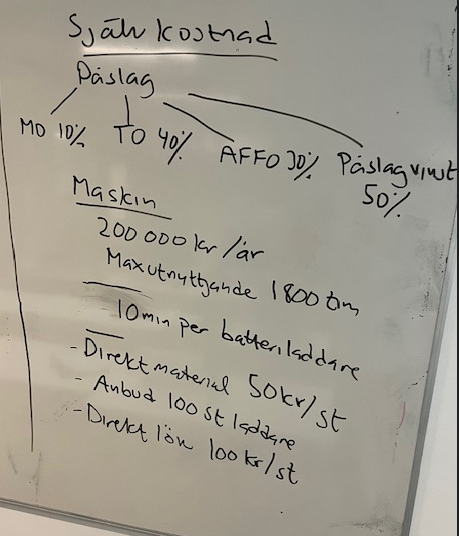 Självkostnad
Påslag
MO 10% TO 40% AFFO 30% Påslag vinst 50%
Maskin
200 000 kr/år
Max utnyttjande 1800 tim
10 min per batteriladdare
- Direkt material 50 kr/st
- Anbud 100 st laddare
- Direkt lön 100 kr/st